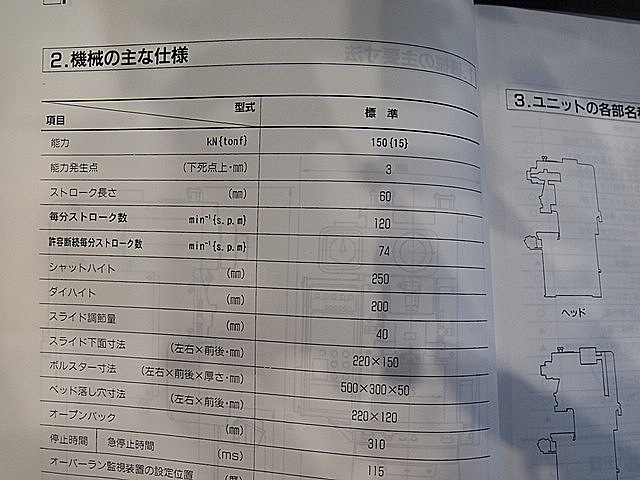 2.機械の主な仕様
型式
項目
標 準
能力 kN{tonf} 150{15}
能力発生点 (下死点上・mm) 3
ストローク長さ (mm) 60
毎分ストローク数 min⁻¹{s.p.m} 120
許容断続毎分ストローク数 min⁻¹{s.p.m} 74
シャットハイト (mm) 250
ダイハイト (mm) 200
スライド調節量 (mm) 40
スライド下面寸法 (左右×前後・mm) 220×150
ボルスター寸法 (左右×前後×厚さ・mm) 500×300×50
ベッド落し穴寸法 (左右×前後・mm) 220×120
オープンバック (mm) 310
停止時間 急停止時間 (ms) 115
オーバーラン監視装置の設定位置
3.ユニットの各部名称
ヘッド